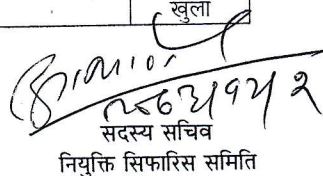 खुला
सदस्य सचिव
नियुक्ति सिफारिस समिति